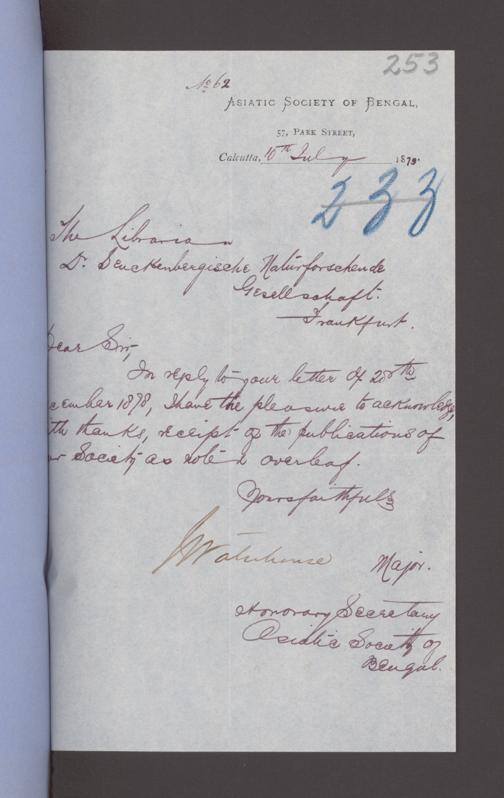 253
No 62
ASIATIC SOCIETY OF BENGAL,
57, PARK STREET,
Calcutta, 10th July 1879.
233
The Librarian
Dr. Senckenbergische Naturforschende
Gesellschaft.
Frankfurt.
Dear Sir,
In reply to your letter of
cember 1878, I have the pleasure to acknowledge,
th thanks, receipt of the publications of
r Society as noted overleaf.
Yours faithfully
J Waterhouse Major.
Honorary Secretary
Asiatic Society of
Bengal.